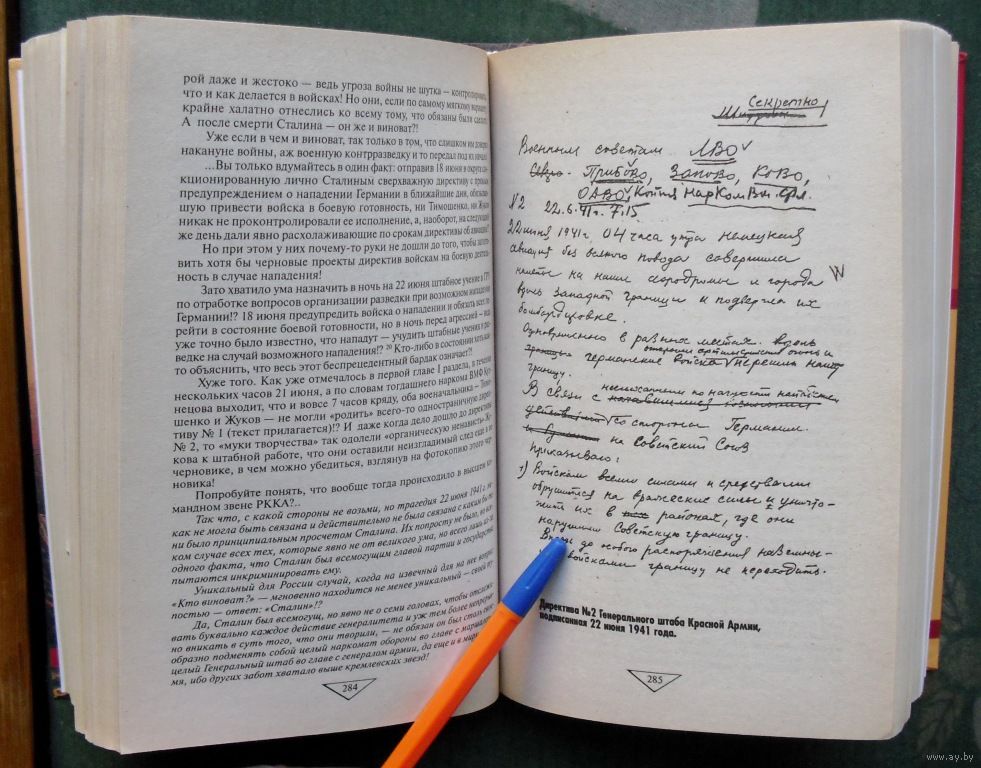 рой даже и жестоко — ведь угроза войны не шутка — контролировать,
что и как делается в войсках! Но они, если по самому мягкому варианту,
крайне халатно отнеслись ко всему тому, что обязаны были сделать.
А после смерти Сталина — он же и виноват?!
Уже если в чем и виноват, так только в том, что слишком им доверял
накануне войны, аж военную контрразведку и то передал под их начало
...Вы только вдумайтесь в один факт: отправив 18 июня в округа сан-
кционированную лично Сталиным сверхважную директиву с прямым
предупреждением о нападении Германии в ближайшие дни, обязывав-
шую привести войска в боевую готовность, ни Тимошенко, ни Жуков
никак не проконтролировали ее исполнение, а, наоборот, на следующий
же день дали явно расхолаживающие по срокам директивы об авиации!
Но при этом у них почему-то руки не дошли до того, чтобы загото-
вить хотя бы черновые проекты директив войскам на боевую деятель-
ность в случае нападения!
Зато хватило ума назначить в ночь на 22 июня штабное учение в ГРУ
по отработке вопросов организации разведки при возможном нападении
Германии!? 18 июня предупредить войска о нападении и обязать их пе-
рейти в состояние боевой готовности, но в ночь перед агрессией — когда
уже точно было известно, что нападут — учудить штабные учения о раз-
ведке на случай возможного нападения!? 20 Кто-либо в состоянии хоть как-
то объяснить, что весь этот беспрецедентный бардак означает?!
Хуже того. Как уже отмечалось в первой главе I раздела, в течение
нескольких часов 21 июня, а по словам тогдашнего наркома ВМФ Куз-
нецова выходит, что и вовсе 7 часов кряду, оба военачальника — Тимо-
шенко и Жуков — не могли «родить» всего-то одностраничную дирек-
тиву № 1 (текст прилагается)!? И даже когда дело дошло до директивы
№ 2, то «муки творчества» так одолели «органическую ненависть» Жу-
кова к штабной работе, что они оставили неизгладимый след еще и на
черновике, в чем можно убедиться, взглянув на фотокопию этого чер-
новика!
Попробуйте понять, что вообще тогда происходило в высшем ко-
мандном звене РККА?..
Так что, с какой стороны не возьми, но трагедия 22 июня 1941 г. ни-
как не могла быть связана и действительно не была связана с каким бы то
ни было принципиальным просчетом Сталина. Их попросту не было, во вся-
ком случае всех тех, которые явно не от великого ума, но всего лишь из-за
одного факта, что Сталин был всемогущим главой партии и государства,
пытаются инкриминировать ему.
Уникальный для России случай, когда на извечный для нее вопрос
«Кто виноват?» — мгновенно находится не менее уникальный — своей ту-
постью — ответ: «Сталин»!?
Да, Сталин был всемогущ, но явно не о семи головах, чтобы отслежи-
вать буквально каждое действие генералитета и уж тем более непрерыв-
но вникать в суть того, что они творили, — не обязан он был столь свое-
образно подменять собой целый наркомат обороны во главе с маршалом и
целый Генеральный штаб во главе с генералом армии, да еще и в мирное вре-
мя, ибо других забот хватало выше кремлевских звезд!
284
Секретно
Шифровкой
Военным советам ЛВО
Прибово, Запово, Ково,
ОдВО, Копия Наркому В.М.
№2 22.6.41г. 7.15
22 июня 1941г. 04 часа утра немецкая
авиация без всякого повода совершила
налеты на наши аэродромы и города
вдоль западной границы и подвергла их
бомбардировке.
Одновременно в разных местах
открыли артиллерийский огонь и
германские войска перешли нашу
границу.
неслыханным по наглости нападением
В связи с
со стороны Германии
на Советский Союз
Приказываю:
1) Войскам всеми силами и средствами
обрушиться на вражеские силы и уничто-
жить их в районах, где они
нарушили Советскую границу.
до особого распоряжения наземны-
войсками границу не переходить.
Директива №2 Генерального штаба Красной Армии,
подписанная 22 июня 1941 года.
285
www.ay.by